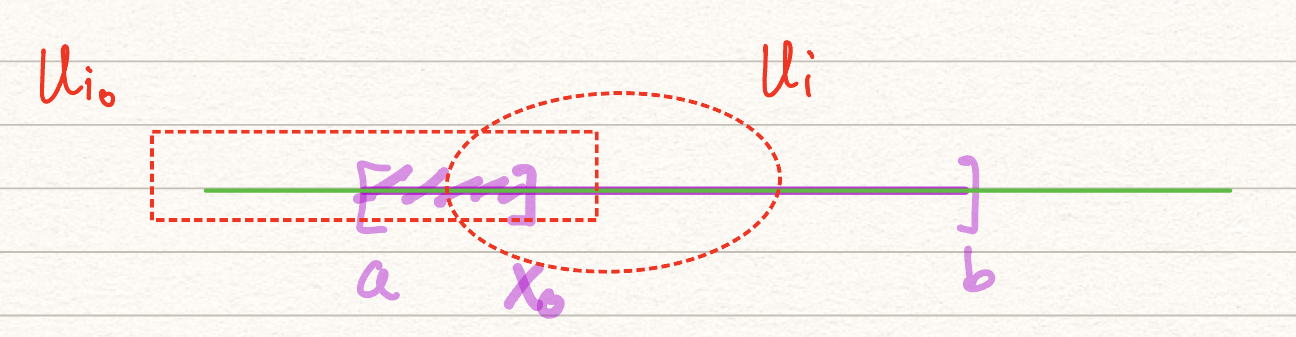 U_{i_0} U_i
[ ] ]
a x_0 b